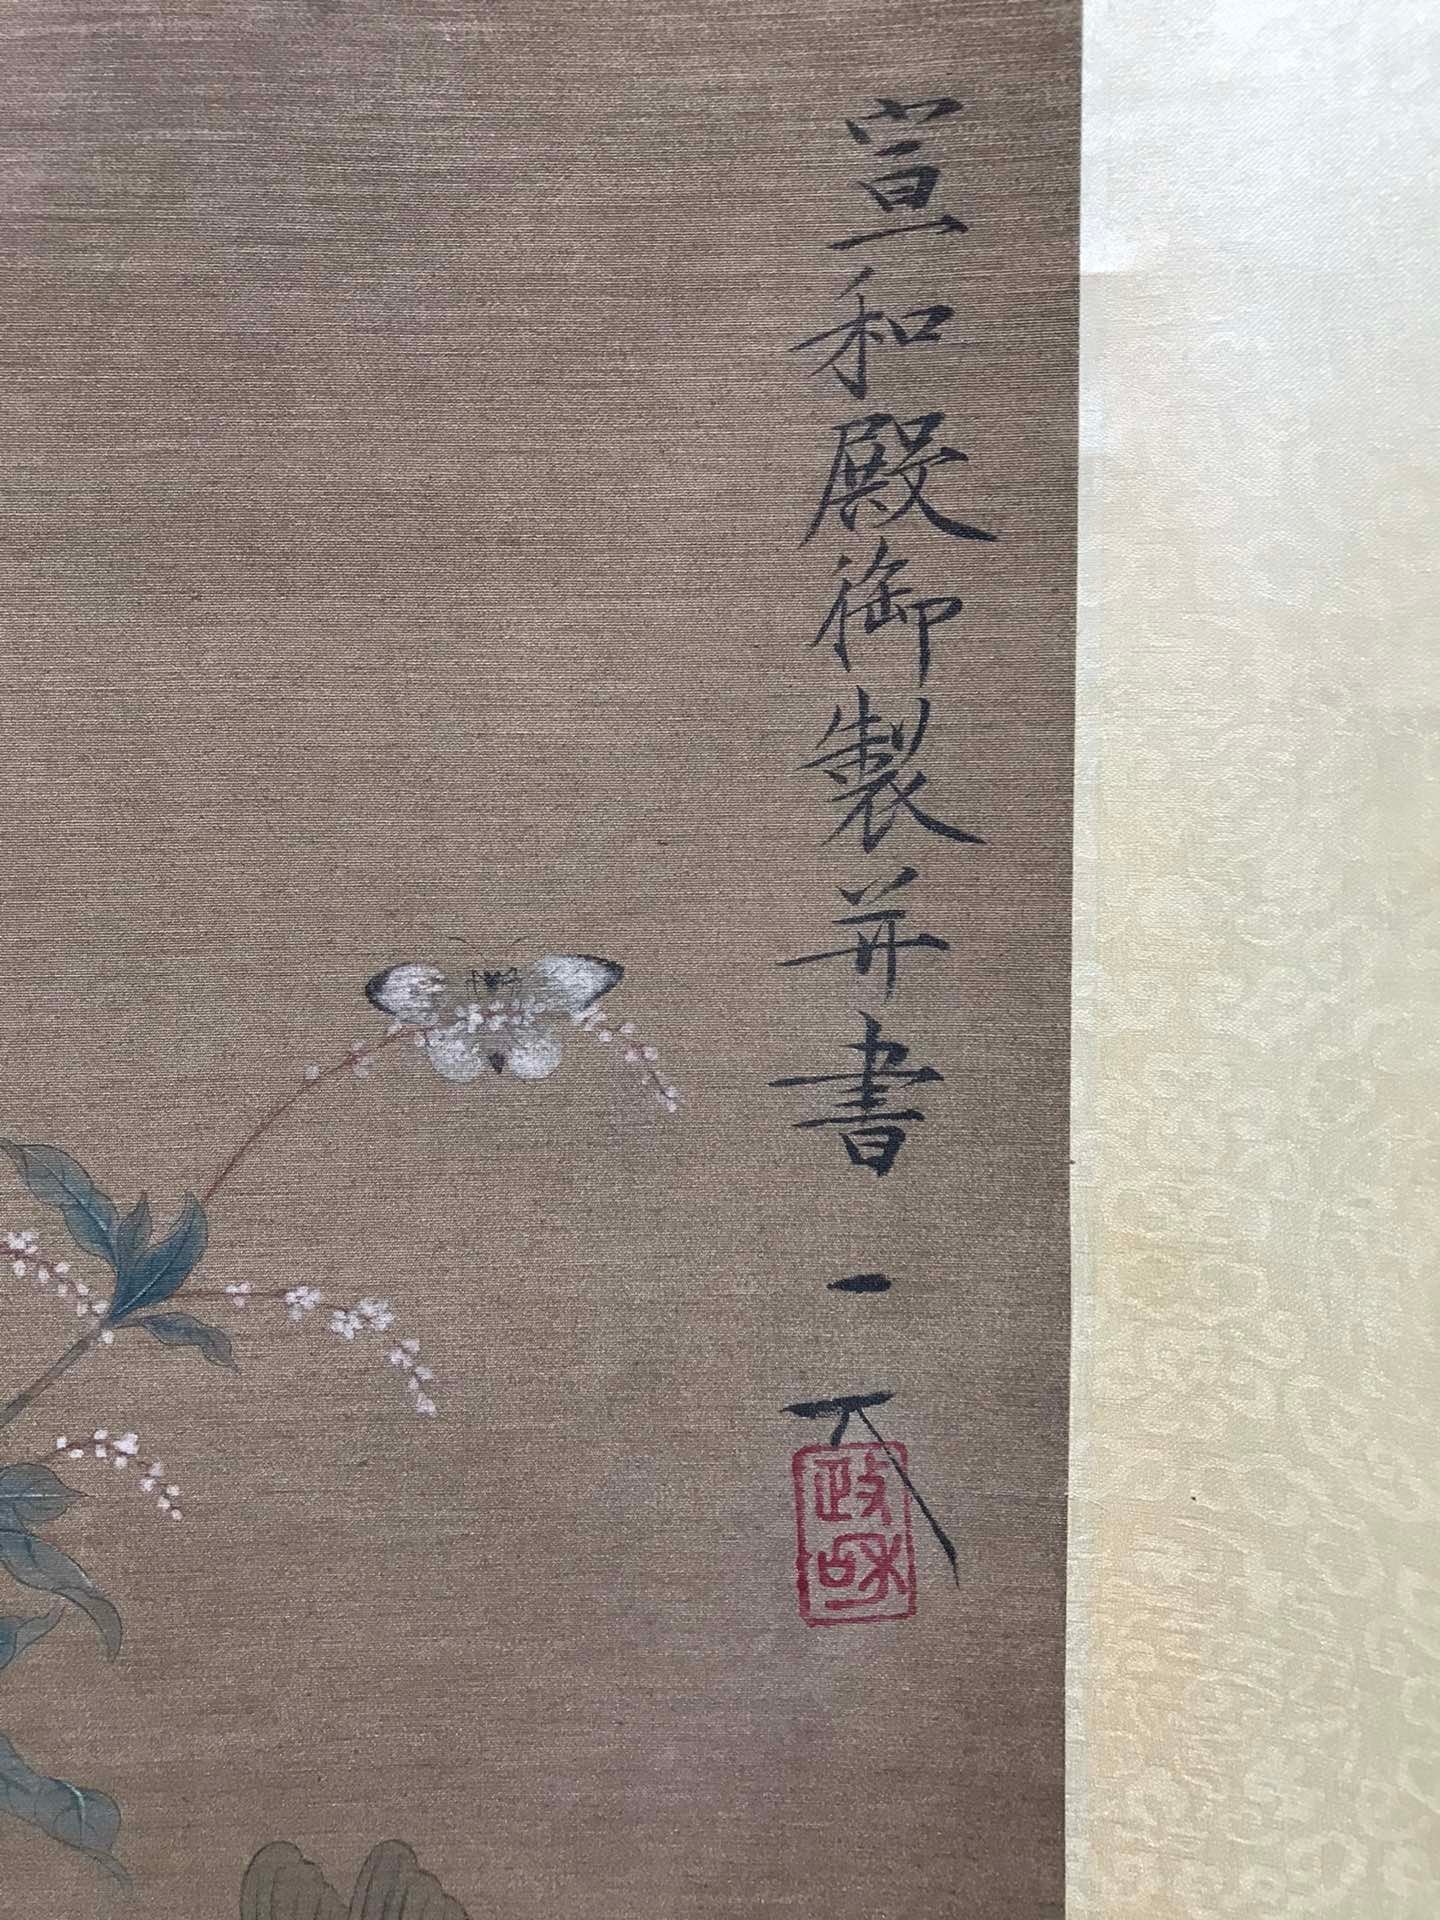 宣和殿御製并書
天
政和